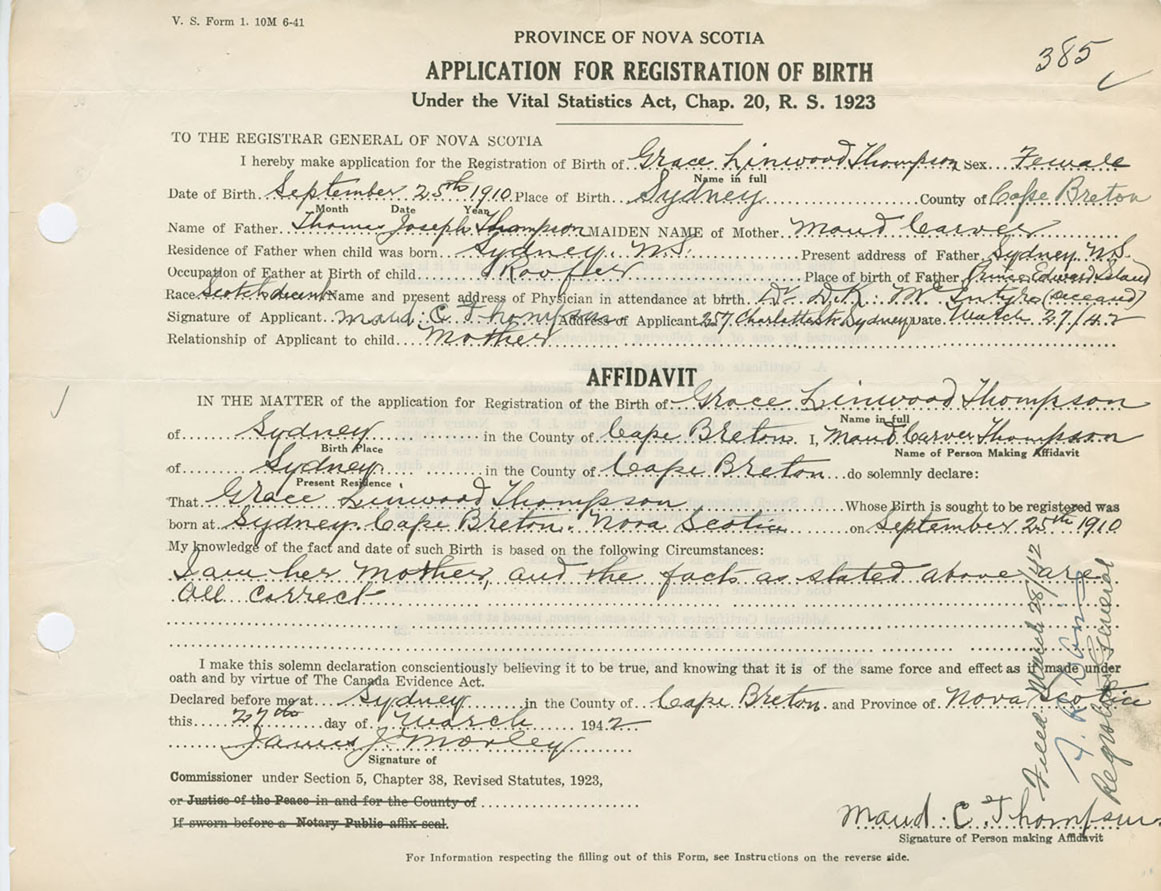 V. S. Form 1. 10M 6-41
PROVINCE OF NOVA SCOTIA
385
APPLICATION FOR REGISTRATION OF BIRTH
Under the Vital Statistics Act, Chap. 20, R. S. 1923
TO THE REGISTRAR GENERAL OF NOVA SCOTIA
I hereby make application for the Registration of Birth of Grace Linwood Thompson Sex Female
Name in full
Date of Birth September 25th 1910 Place of Birth Sydney County of Cape Breton
Month Date Year
Name of Father Thomas Joseph Thompson MAIDEN NAME of Mother Maud Carver
Residence of Father when child was born Sydney. N.S. Present address of Father Sydney N.S.
Occupation of Father at Birth of child Roofer Place of birth of Father Prince Edward Island
Race Scotch decent Name and present address of Physician in attendance at birth Dr. D.K. Mc Intyre (deceased)
Signature of Applicant Maud. C Thompson Address of Applicant 257 Charlotte St Sydney Date March 27/42
Relationship of Applicant to child Mother
AFFIDAVIT
IN THE MATTER of the application for Registration of the Birth of Grace Linwood Thompson
Name in full
of Sydney in the County of Cape Breton. I, Maud Carver Thompson
Birth Place Name of Person Making Affidavit
of Sydney in the County of Cape Breton do solemnly declare:
Present Residence
That Grace Linwood Thompson Whose Birth is sought to be registered was
born at Sydney. Cape Breton. Nova Scotia on September 25th 1910
My knowledge of the fact and date of such Birth is based on the following Circumstances:
I am her Mother, and the facts as stated above are
all correct
I make this solemn declaration conscientiously believing it to be true, and knowing that it is of the same force and effect as if made under
oath and by virtue of The Canada Evidence Act.
Declared before me at Sydney in the County of Cape Breton. and Province of Nova Scotia
this 27th day of March 1942
James J Morley
Signature of
Commissioner under Section 5, Chapter 38, Revised Statutes, 1923,
or Justice of the Peace in and for the County of
If sworn before a Notary Public affix seal.
Maud. C. Thompson
Signature of Person making Affidavit
For Information respecting the filling out of this Form, see Instructions on the reverse side.
Filed March 28/42
Registrar General